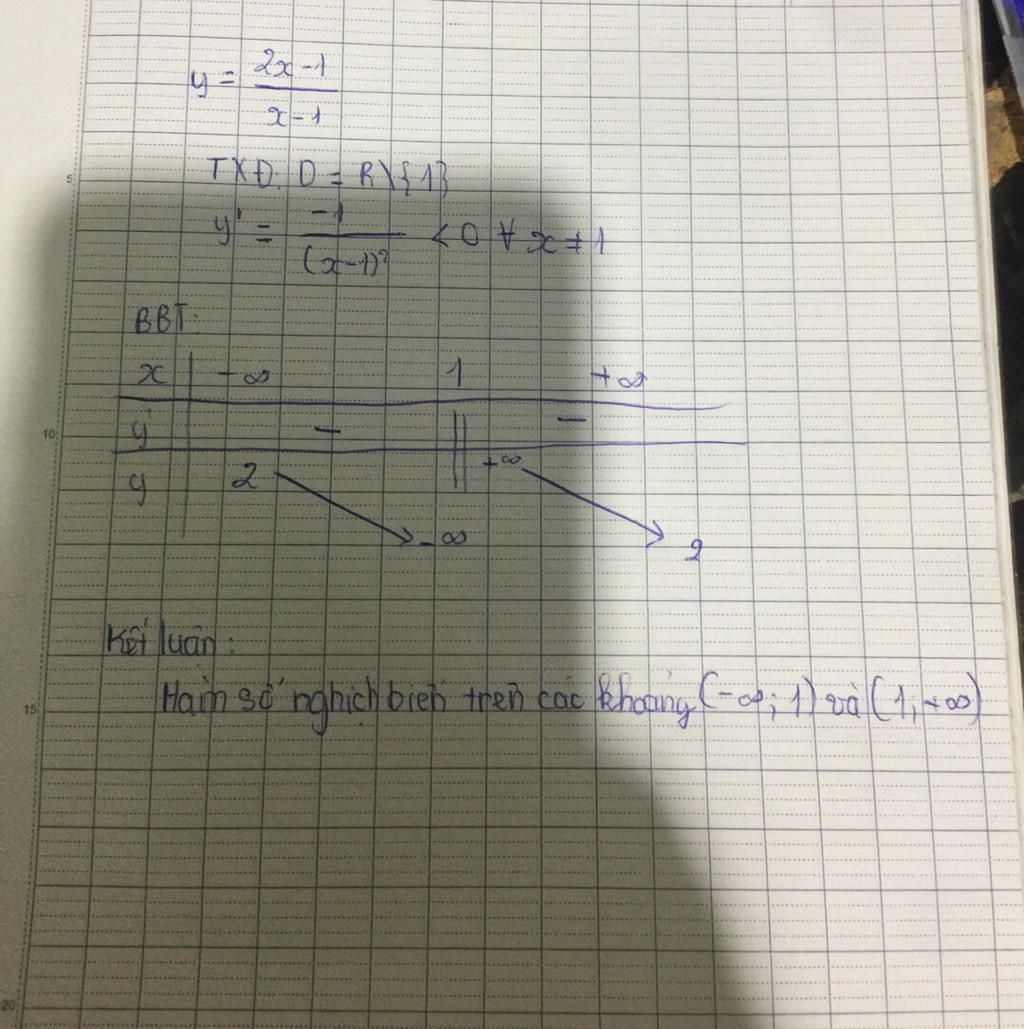 y = 2x-1
x-1
TXĐ. D = R\{1}
y' = -1 / (x-1)² < 0 ∀ x ≠ 1
BBT:
x -∞ 1 +∞
y' - || -
y 2 -∞ || +∞ 2
Kết luận:
Hàm số nghịch biến trên các khoảng (-∞; 1) và (1; +∞)
5
10
15
20